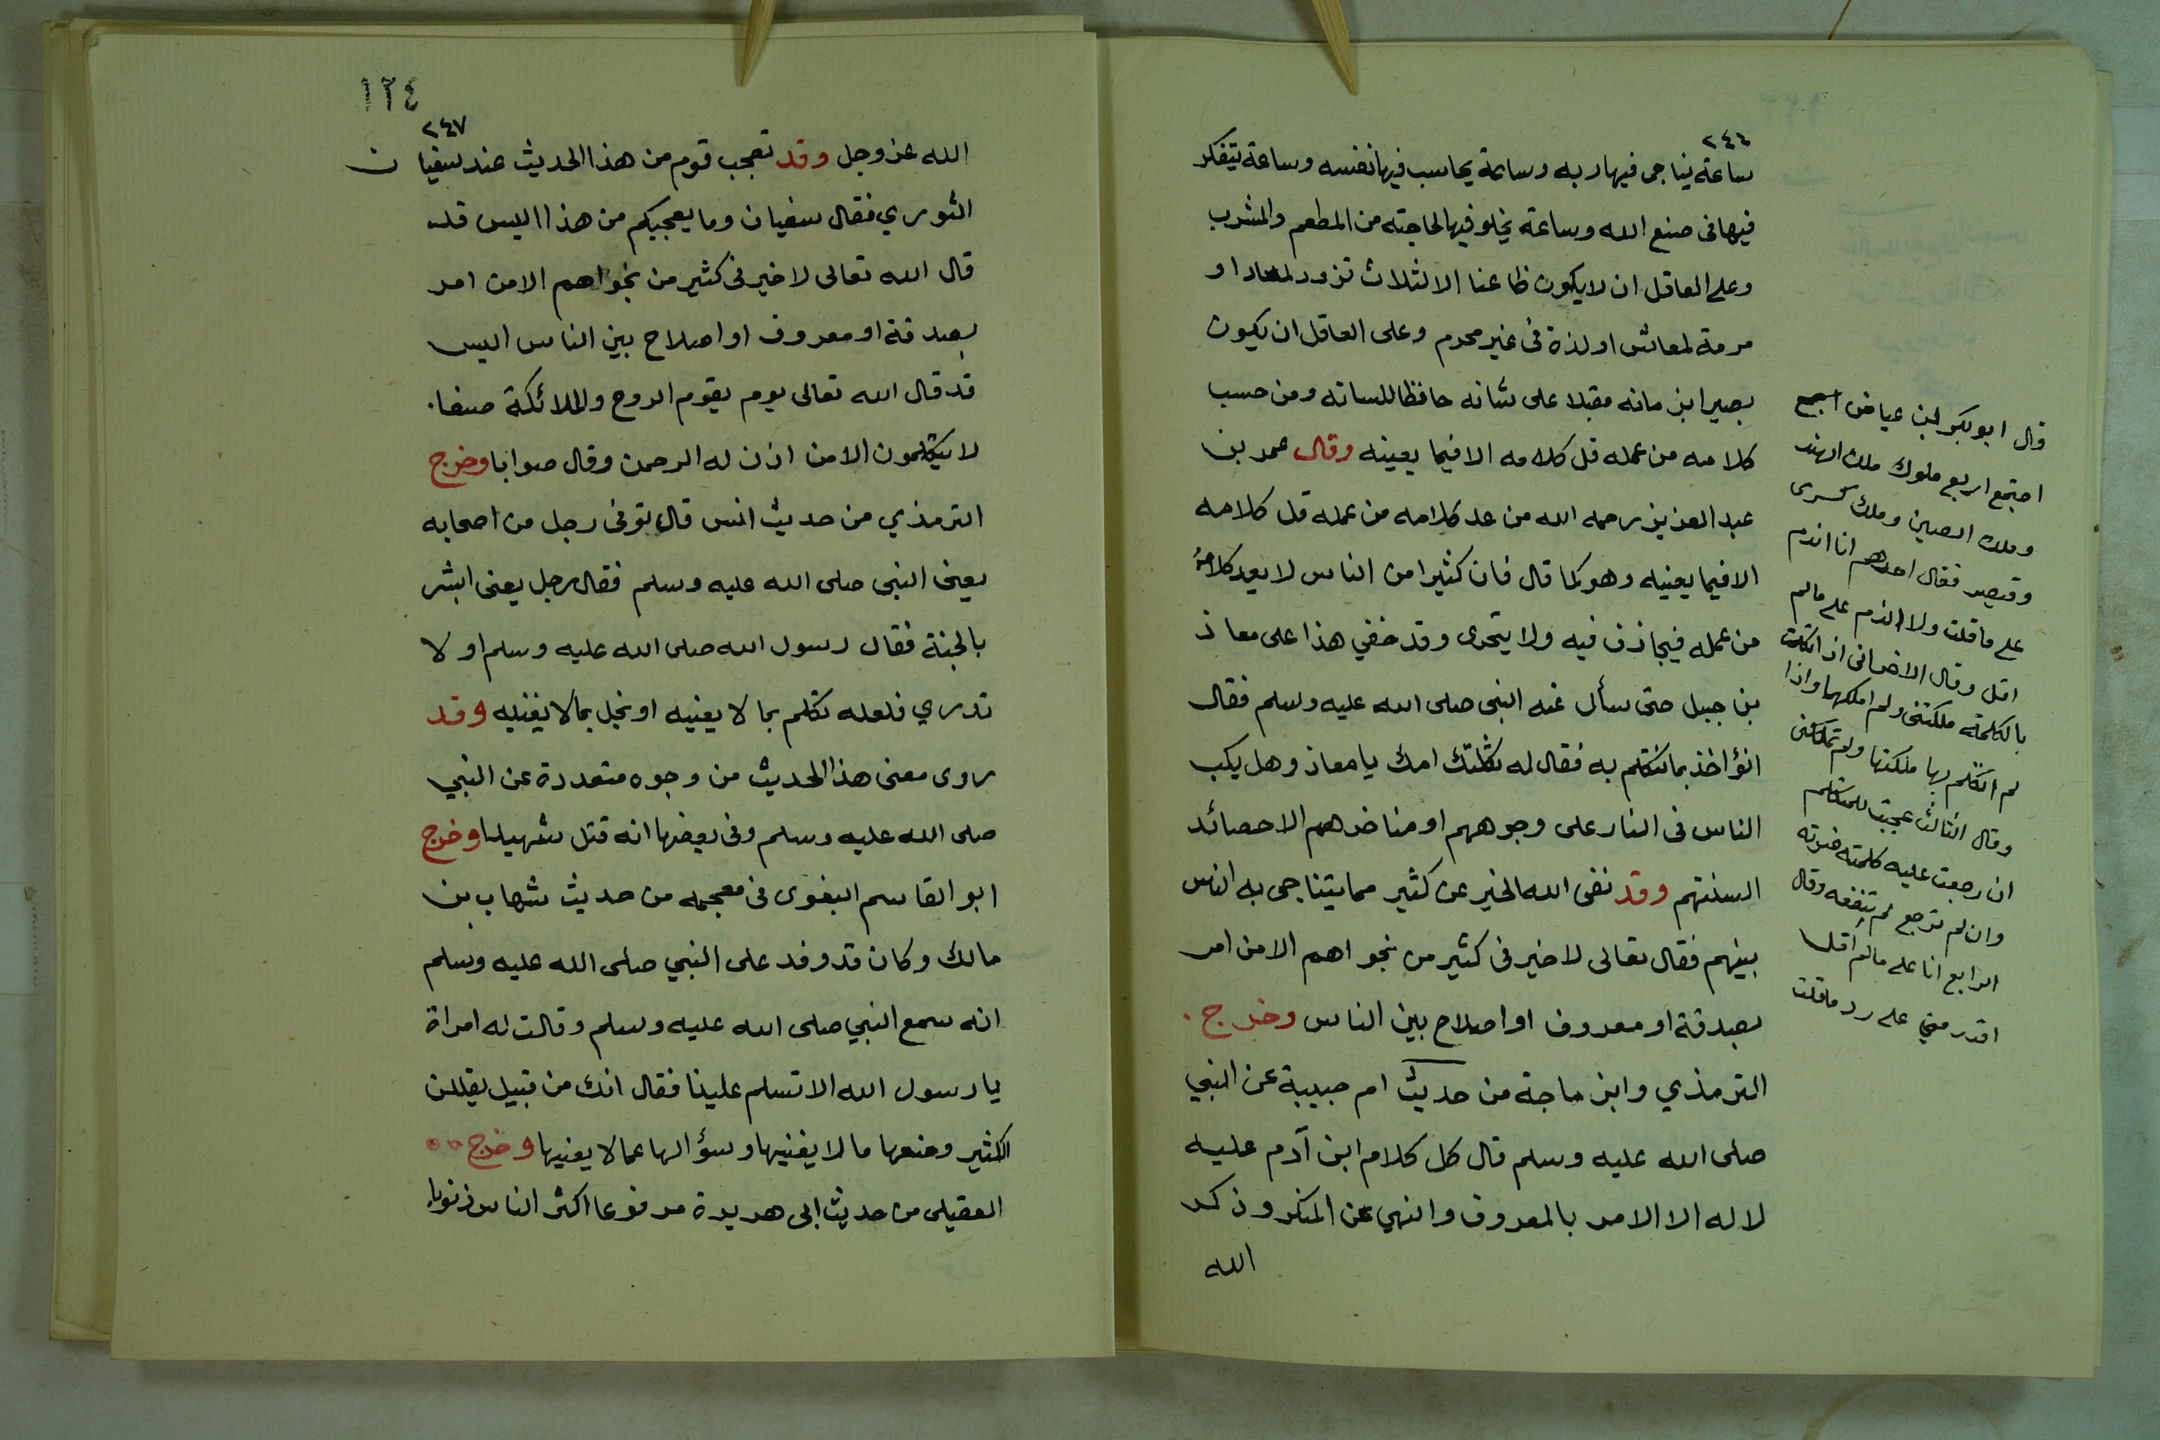 ٢٤٤
ساعة يناجى فيها ربه وساعة يحاسب فيها نفسه وساعة يتفكر
فيها فى صنع الله وساعة يخلو فيها لحاجته من المطعم والمشرب
وعلى العاقل ان لا يكون ظاعنا الا لثلاث تزود لمعاد او
مرمة لمعاش او لذة فى غير محرم وعلى العاقل ان يكون
بصيرا بزمانه مقبلا على شانه حافظا للسانه ومن حسب
كلامه من عمله قل كلامه الا فيما يعينه وقال عمر بن
عبد العزيز رحمه الله من عد كلامه من عمله قل كلامه
الا فيما يعنيه وهو كما قال فان كثيرا من الناس لا يعد كلامه
من عمله فيجازف فيه ولا يتحرى وقد خفي هذا على معاذ
بن جبل حتى سأل عنه النبى صلى الله عليه وسلم فقال
انؤاخذ بما نتكلم به فقال له ثكلتك امك يا معاذ وهل يكب
الناس فى النار على وجوههم او مناخرهم الا حصائد
السنتهم وقد نفى الله الخير عن كثير مما يتناجى به الناس
بينهم فقال تعالى لا خير فى كثير من نجواهم الا من امر
بصدقة او معروف او اصلاح بين الناس وخرج .
الترمذي وابن ماجة من حديث ام حبيبة عن النبي
صلى الله عليه وسلم قال كل كلام ابن آدم عليه
لا له الا الامر بالمعروف والنهي عن المنكر وذكر
الله
قال ابو بكر لبن عياض اجمع
اجتمع اربع ملوك ملك الهند
وملك الصين وملك كسرى
وقيصر فقال احدهم انا اندم
على ما قلت ولا اندم على مالم
اقل وقال الاخر انى اذا تكلمت
بالكلمة ملكتنى ولم املكها واذا
لم اتكلم بها ملكتها ولم تملكنى
وقال الثالث عجبت للمتكلم
ان رجعت عليه كلمته ضرته
وان لم ترجع لم تنفعه وقال
الرابع انا على مالم أقل
اقدر مني على رد ما قلت
١٢٤
٢٤٧
الله عز وجل وقد تعجب قوم من هذا الحديث عند سفيان
الثوري فقال سفيان وما يعجبكم من هذا اليس قد
قال الله تعالى لا خير فى كثير من نجواهم الا من امر
بصدقة او معروف او اصلاح بين الناس اليس
قد قال الله تعالى يوم يقوم الروح والملائكة صفا .
لا يتكلمون الا من اذن له الرحمن وقال صوابا وخرج
الترمذي من حديث انس قال توفى رجل من اصحابه
يعنى النبى صلى الله عليه وسلم فقال رجل يعنى ابشر
بالجنة فقال رسول الله صلى الله عليه وسلم او لا
تدري فلعله تكلم بما لا يعنيه او بخل بما لا يغنيه وقد
روى معنى هذا الحديث من وجوه متعددة عن النبي
صلى الله عليه وسلم وفى بعضها انه قتل شهيدا وخرج
ابو القاسم البغوى فى معجمه من حديث شهاب بن
مالك وكان قد وفد على النبي صلى الله عليه وسلم
انه سمع النبي صلى الله عليه وسلم وقالت له امراة
يا رسول الله الا تسلم علينا فقال انك من قبيل يقللن
الكثير ومنعها ما لا يغنيها وسؤالها عما لا يعنيها وخرج
العقيلى من حديث ابى هريرة مرفوعا اكثر الناس ذنوبا